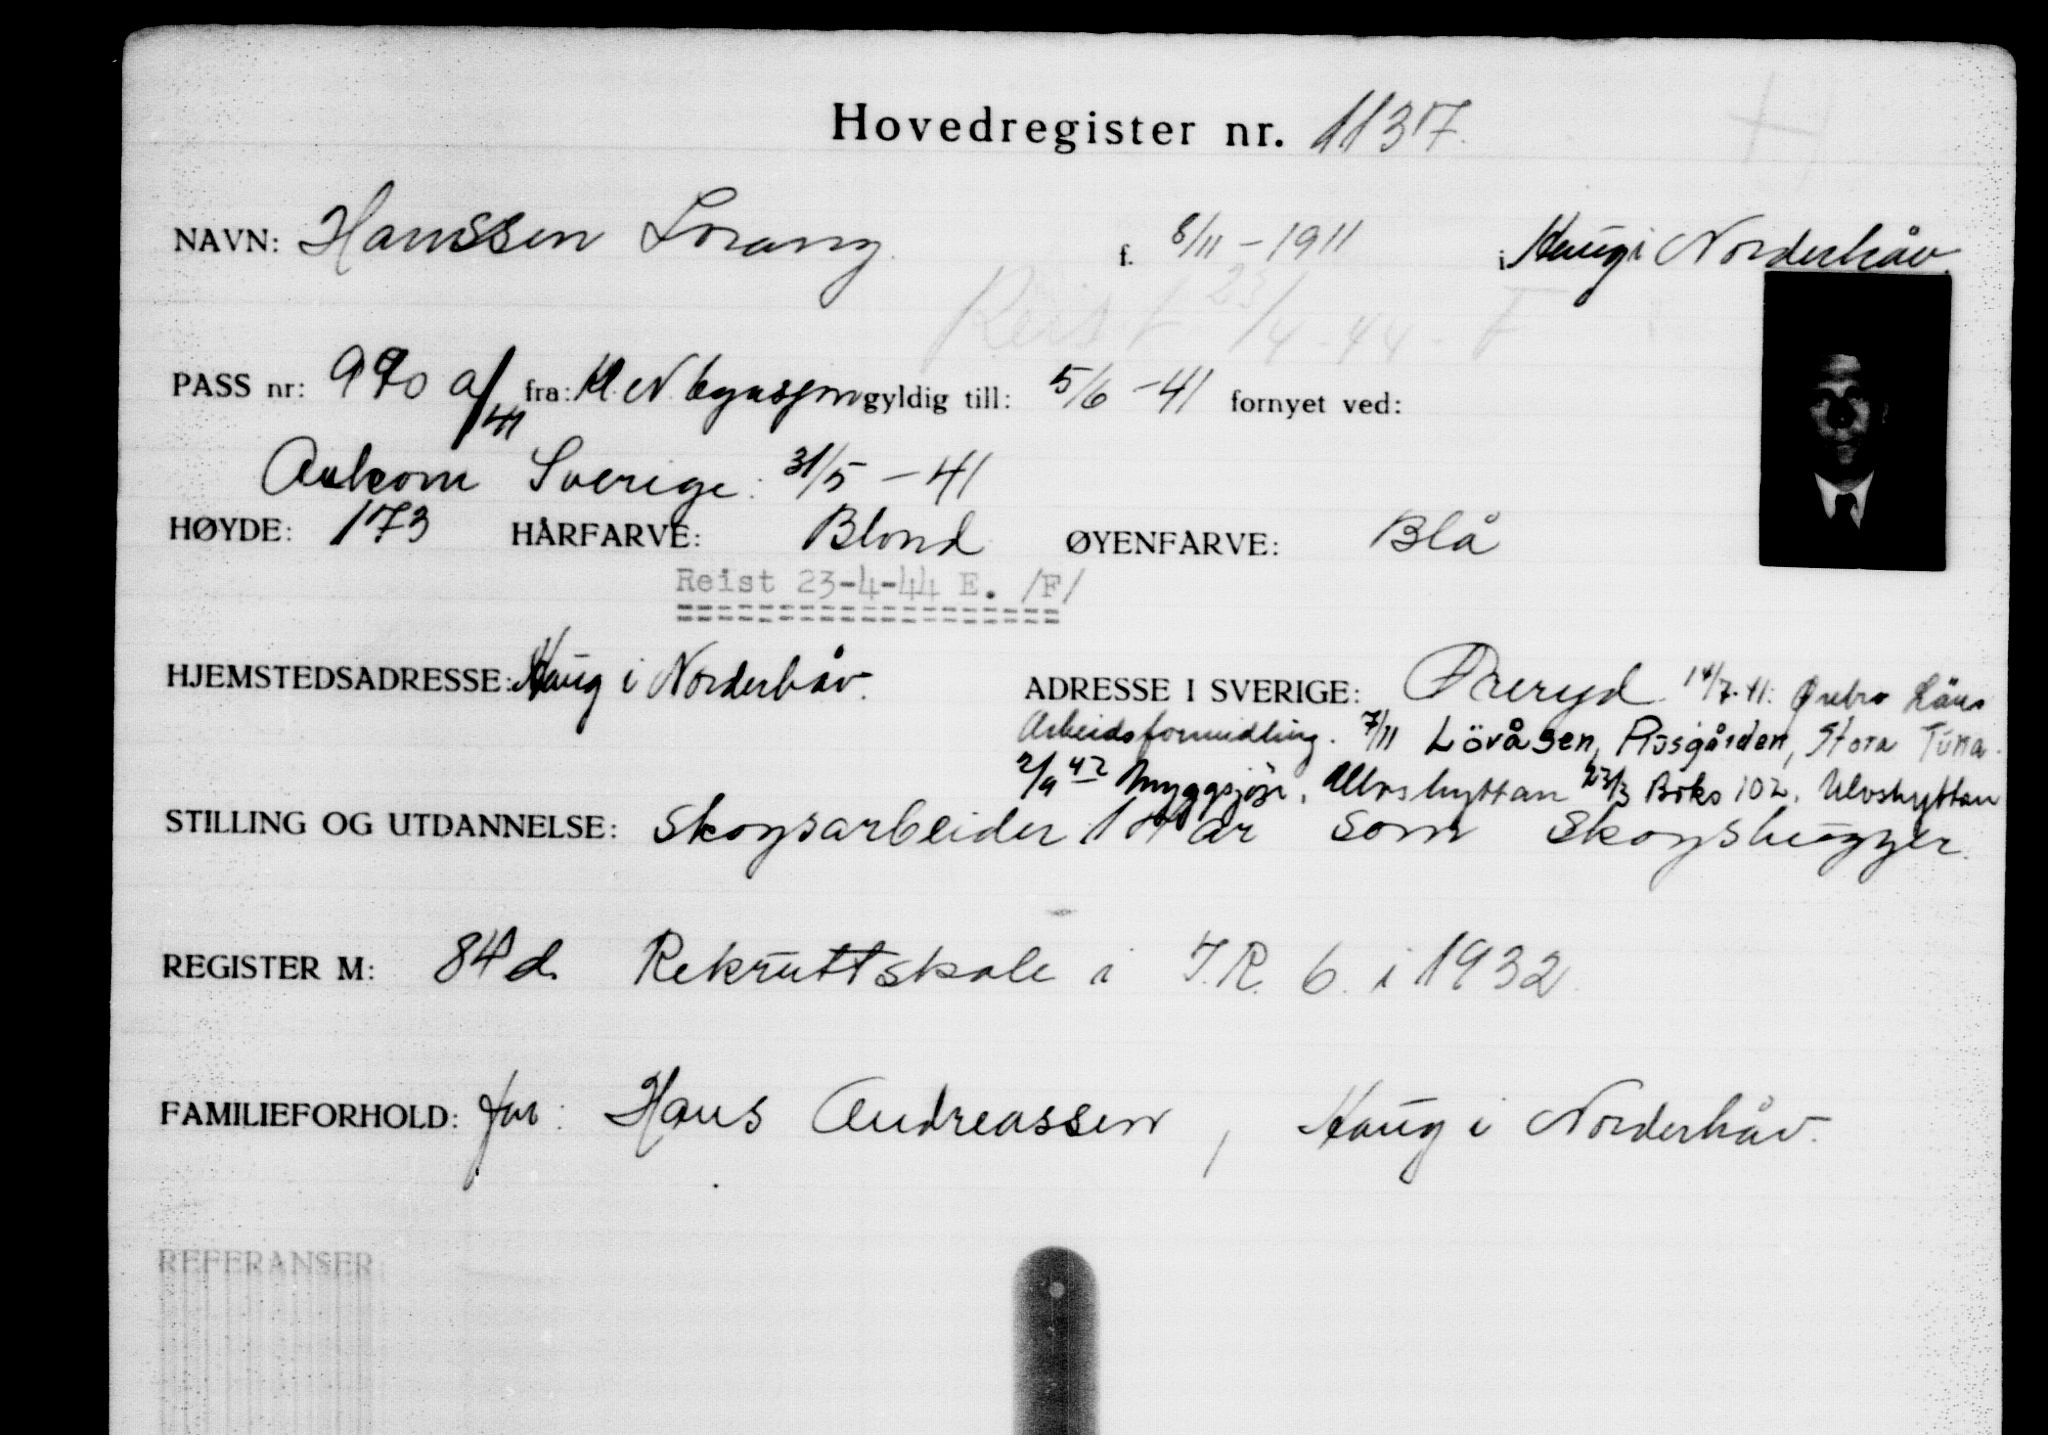 Hovedregister nr. 1137.
NAVN: Hanssen Lorang. f. 8/11 - 1911 i Haug i Norderhåv.
Reist 23/4-44 - F
PASS nr: 990 a/41 fra: gyldig till: 5/6 -41 fornyet ved:
Ankom Sverige: 31/5 - 41
HØYDE: 173 HÅRFARVE: Blond ØYENFARVE: Blå
Reist 23-4-44 E. /F/
HJEMSTEDSADRESSE: Haug i Norderhåv. ADRESSE I SVERIGE: Øreryd. 14/7-41: Ørebro Läns
Arbeidsformidling. 7/11 Lövåsen, Pusgården, Stora Tuna.
2/9 42 Myggsjön, Ulvshyttan 23/3 Boks 102, Ulvshyttan
STILLING OG UTDANNELSE: Skogsarbeider 14 år som skogshugger.
REGISTER M: 84 d. Rekruttskole i I.R. 6. i 1932.
FAMILIEFORHOLD: far: Hans Andreassen, Haug i Norderhåv.
REFERANSER: